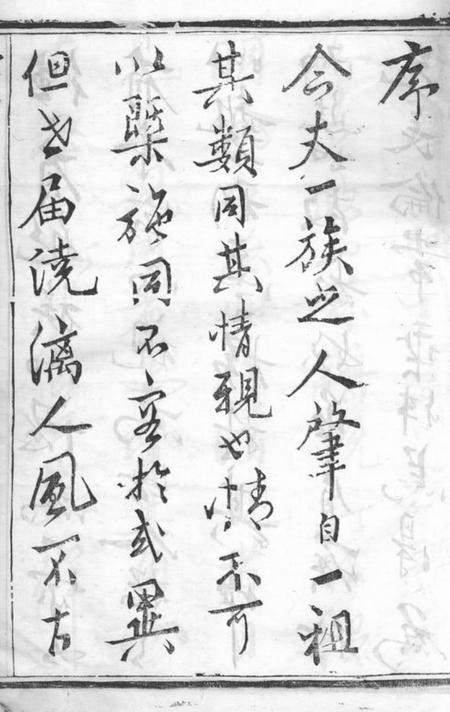 序
今夫一族之人肇自一祖
其類同其情親也情不可
以槩施同不容於或異
但世届澆漓人風不古